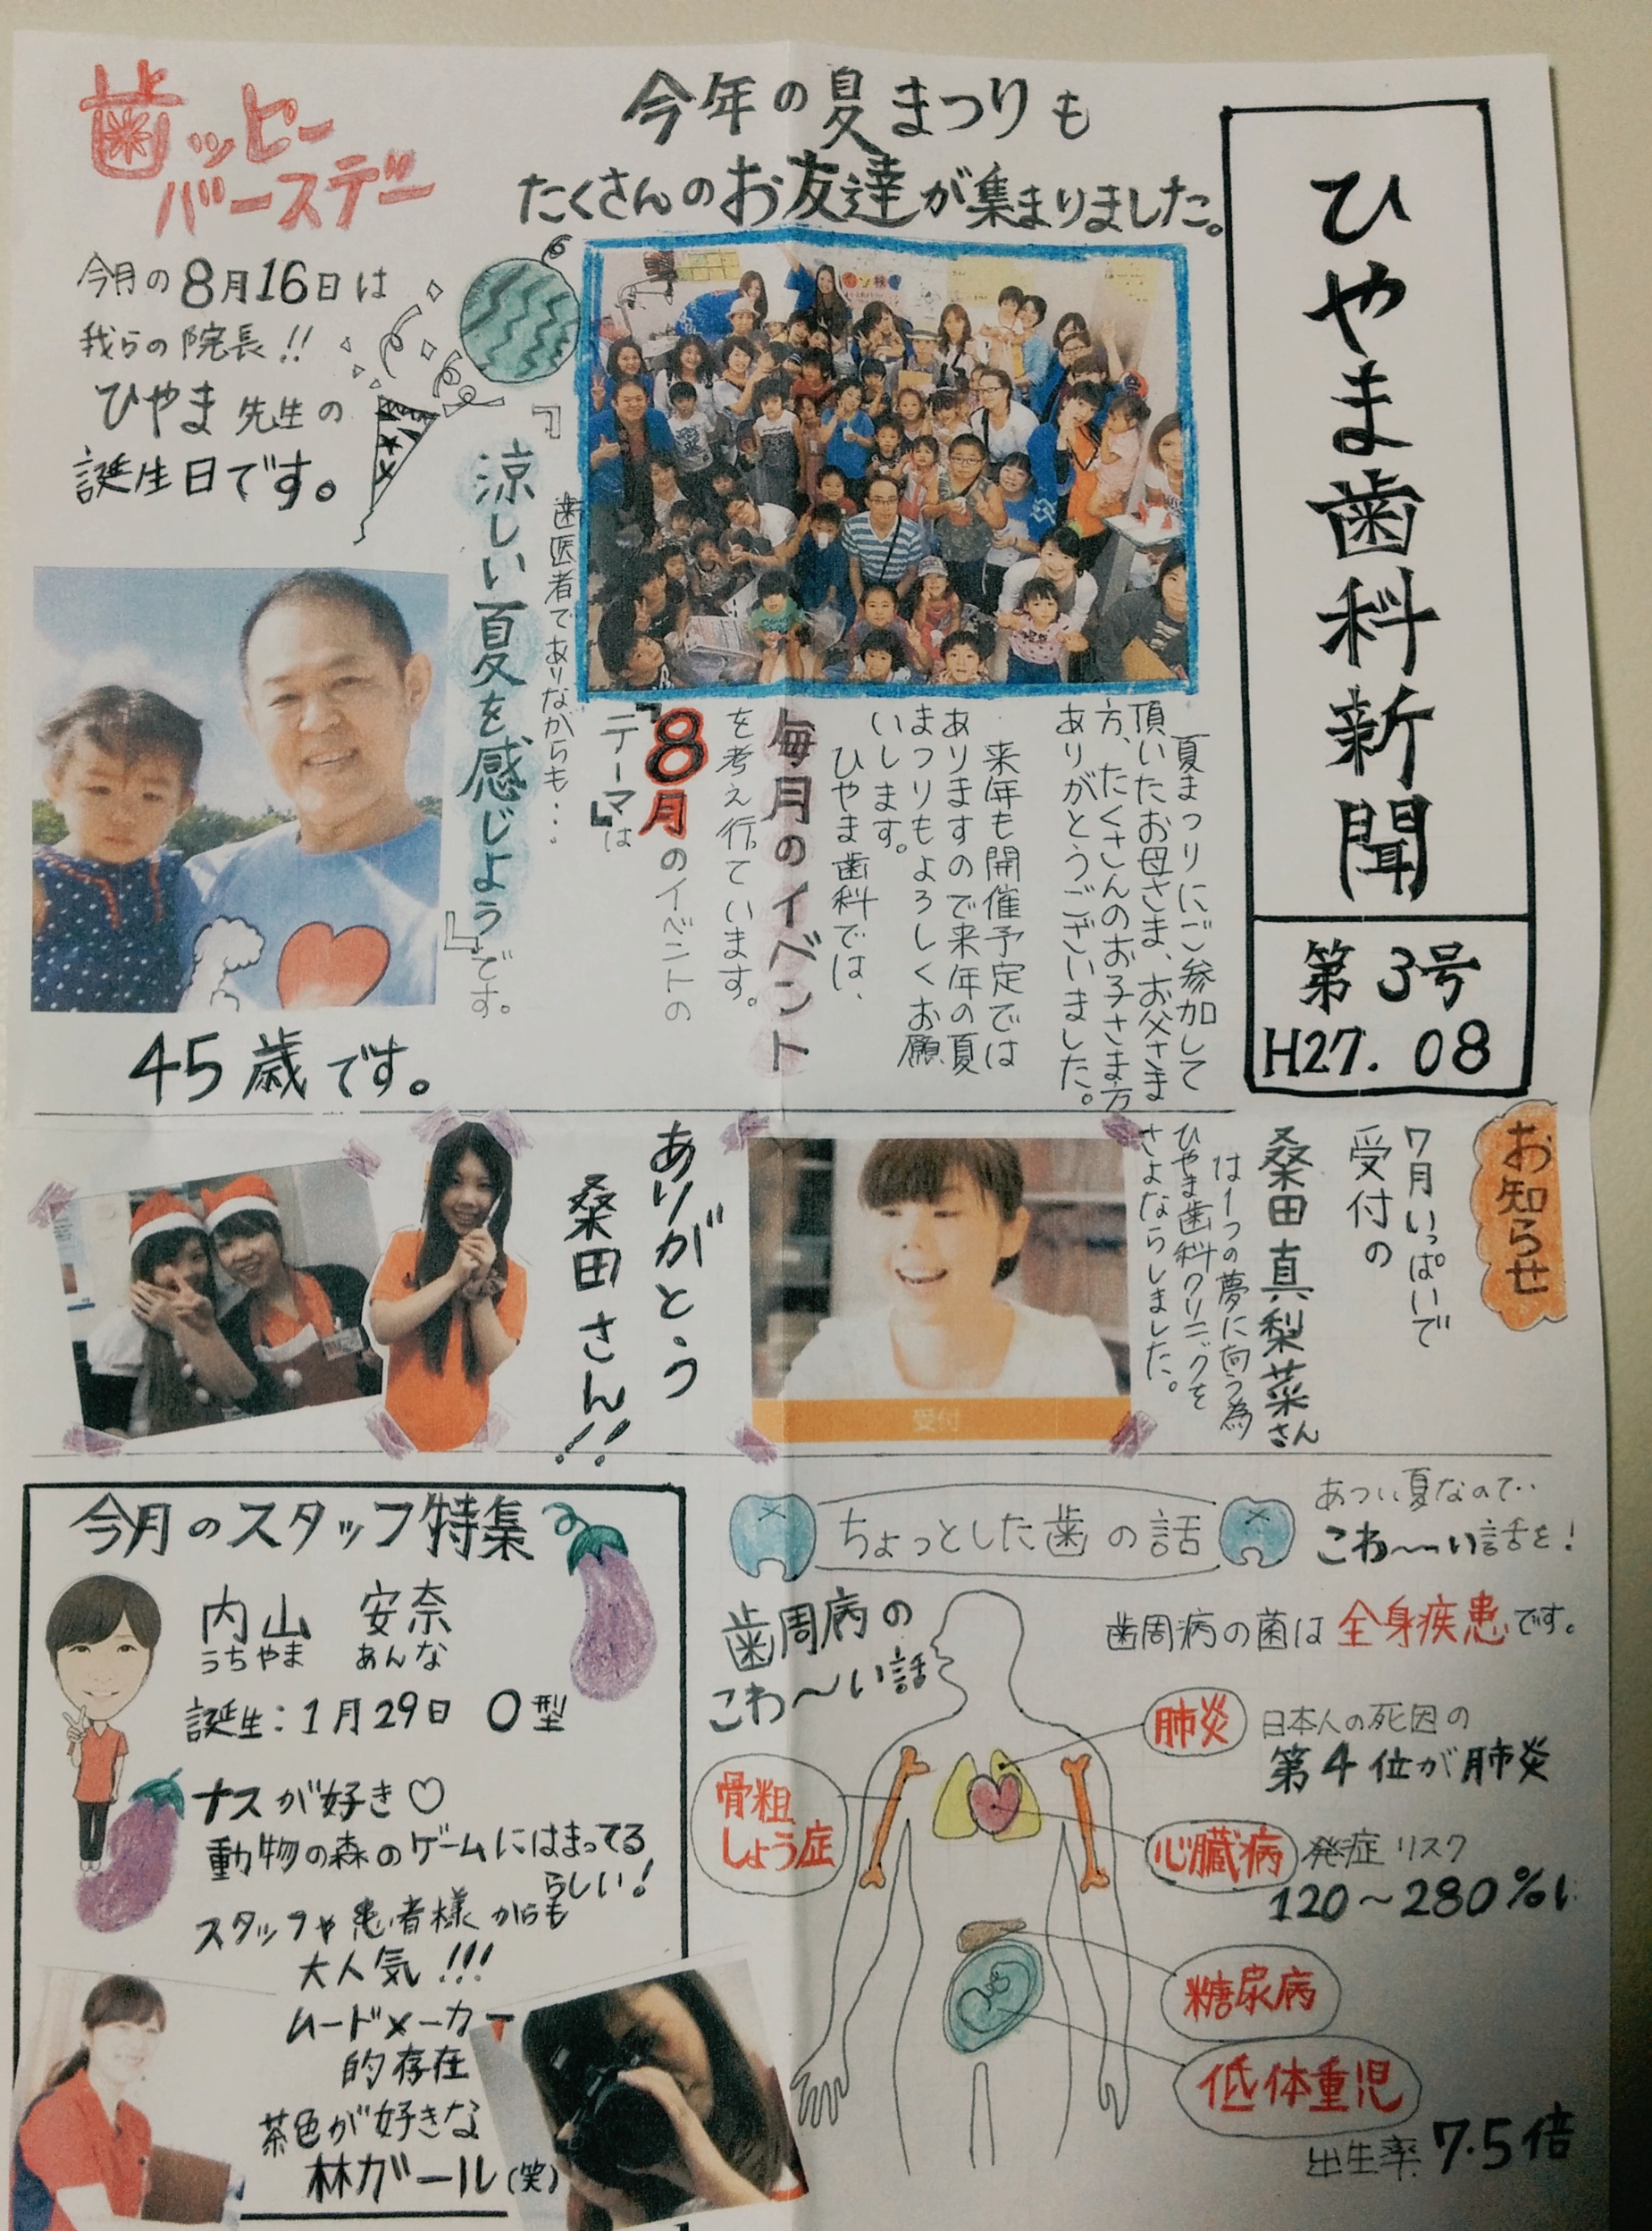 ひやま歯科新聞
第3号
H27.08
今年の夏まつりも
たくさんのお友達が集まりました。
夏まつりにご参加して
頂いたお母さま、お父さま
方、たくさんのお子さま方
ありがとうございました。
来年も開催予定では
ありますので来年の夏
まつりもよろしくお願
いします。
ひやま歯科では、
毎月のイベント
を考え行っています。
『8月のイベントの
テーマ』は
歯医者でありながらも…
『涼しい夏を感じよう』です。
歯ッピー
バースデー
今月の8月16日は
我らの院長!!
ひやま先生の
誕生日です。
45歳です。
お知らせ
7月いっぱいで
受付の
桑田真梨菜さん
は1つの夢に向う為
ひやま歯科クリニックを
さよならしました。
受付
ありがとう
桑田さん!!
今月のスタッフ特集
内山 安奈
うちやま あんな
誕生:1月29日 O型
ナスが好き♡
動物の森のゲームにはまってる
らしい!
スタッフや患者様からも
大人気!!!
ムードメーカー
的存在
茶色が好きな
林ガール(笑)
ちょっとした歯の話
あつい夏なので‥
こわ〜〜い話を!
歯周病の
こわ〜〜い話
歯周病の菌は全身疾患です。
肺炎 日本人の死因の
第4位が肺炎
骨粗
しょう症
心臓病 発症リスク
120〜280%
糖尿病
低体重児
出生率 7.5倍